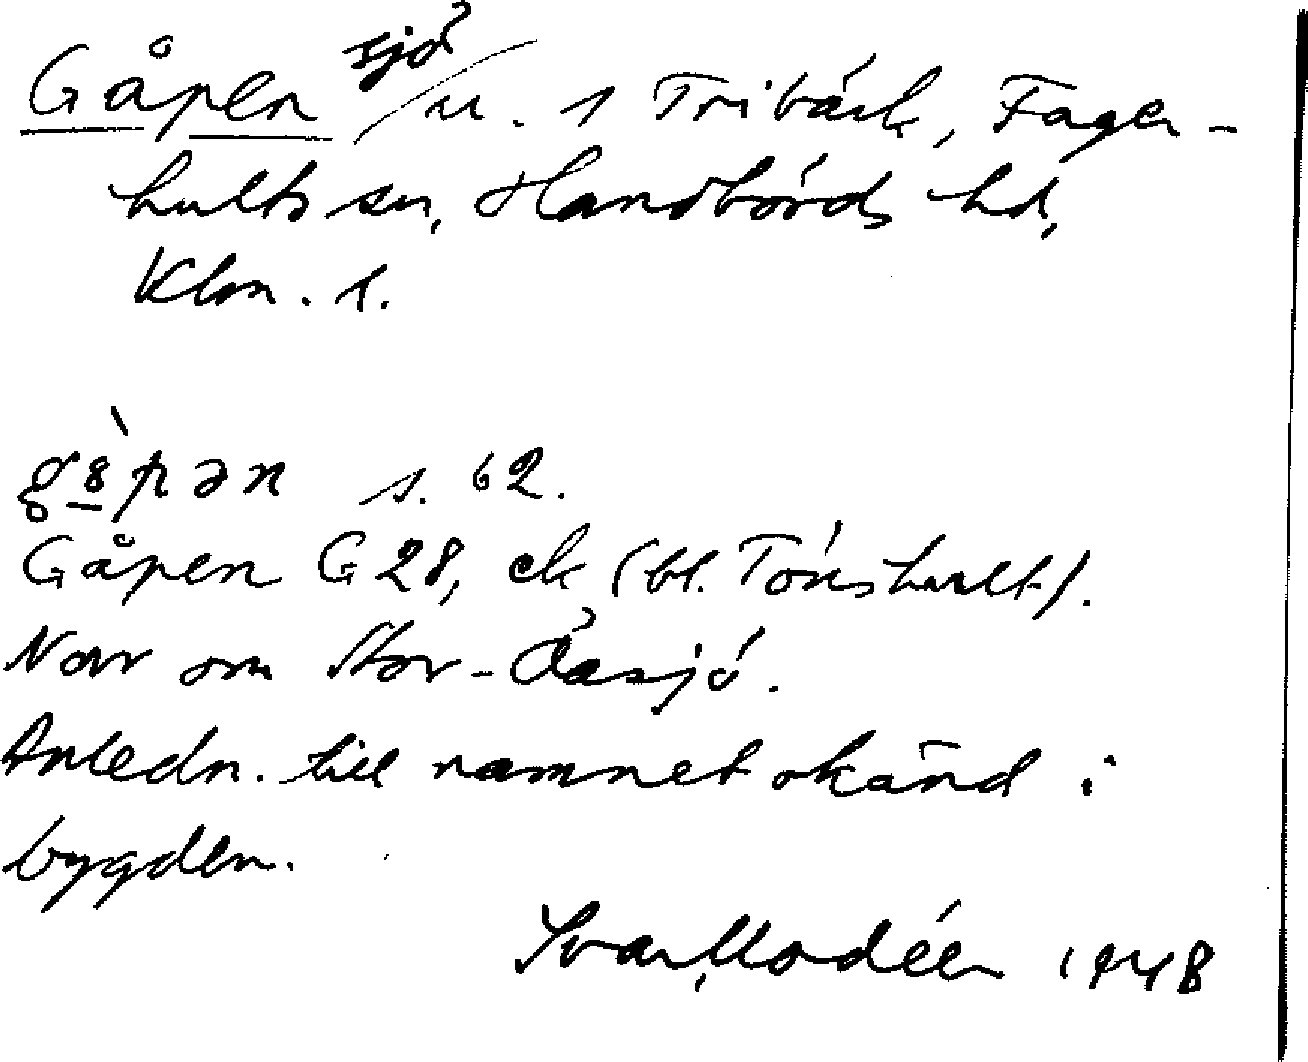 Gåpen sjö? u. 1 Tribäck, Fager-
hults sn, Handbörds hd,
Klm. l.
s. 62.
Gåpen G 28, ek (bl. Tönshult).
Norr om Stor-Åasjö.
Anledn. till namnet okänd i
bygden.
Ivar Modéer 1948